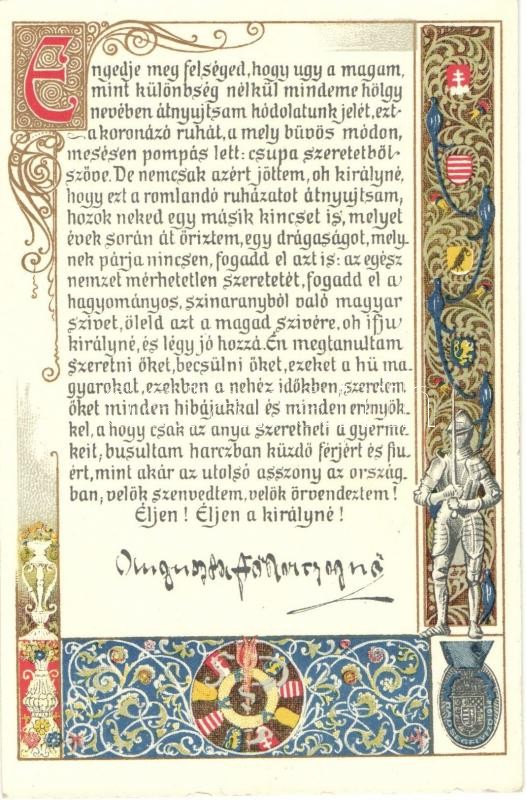 Engedje meg felséged, hogy ugy a magam,
mint különbség nélkül mindeme hölgy
nevében átnyujtsam hódolatunk jelét, ezt
a koronázó ruhát, a mely büvös módon,
mesésen pompás lett: csupa szeretetből
szöve. De nemcsak azért jöttem, oh királyné,
hogy ezt a romlandó ruházatot átnyujtsam,
hozok neked egy másik kincset is, melyet
évek során át őriztem, egy drágaságot, mely-
nek párja nincsen, fogadd el azt is: az egész
nemzet mérhetetlen szeretetét, fogadd el a
hagyományos, szinaranyból való magyar
szivet, öleld azt a magad szivére, oh ifju
királyné, és légy jó hozzá. Én megtanultam
szeretni őket, becsülni őket, ezeket a hü ma-
gyarokat, ezekben a nehéz időkben, szeretem
őket minden hibájukkal és minden erényök-
kel, a hogy csak az anya szeretheti a gyerme-
keit; busultam harczban küzdő férjért és fiu-
ért, mint akár az utolsó asszony az ország-
ban; velök szenvedtem, velök örvendeztem!
Éljen! Éljen a királyné!
Auguszta főherczegnő